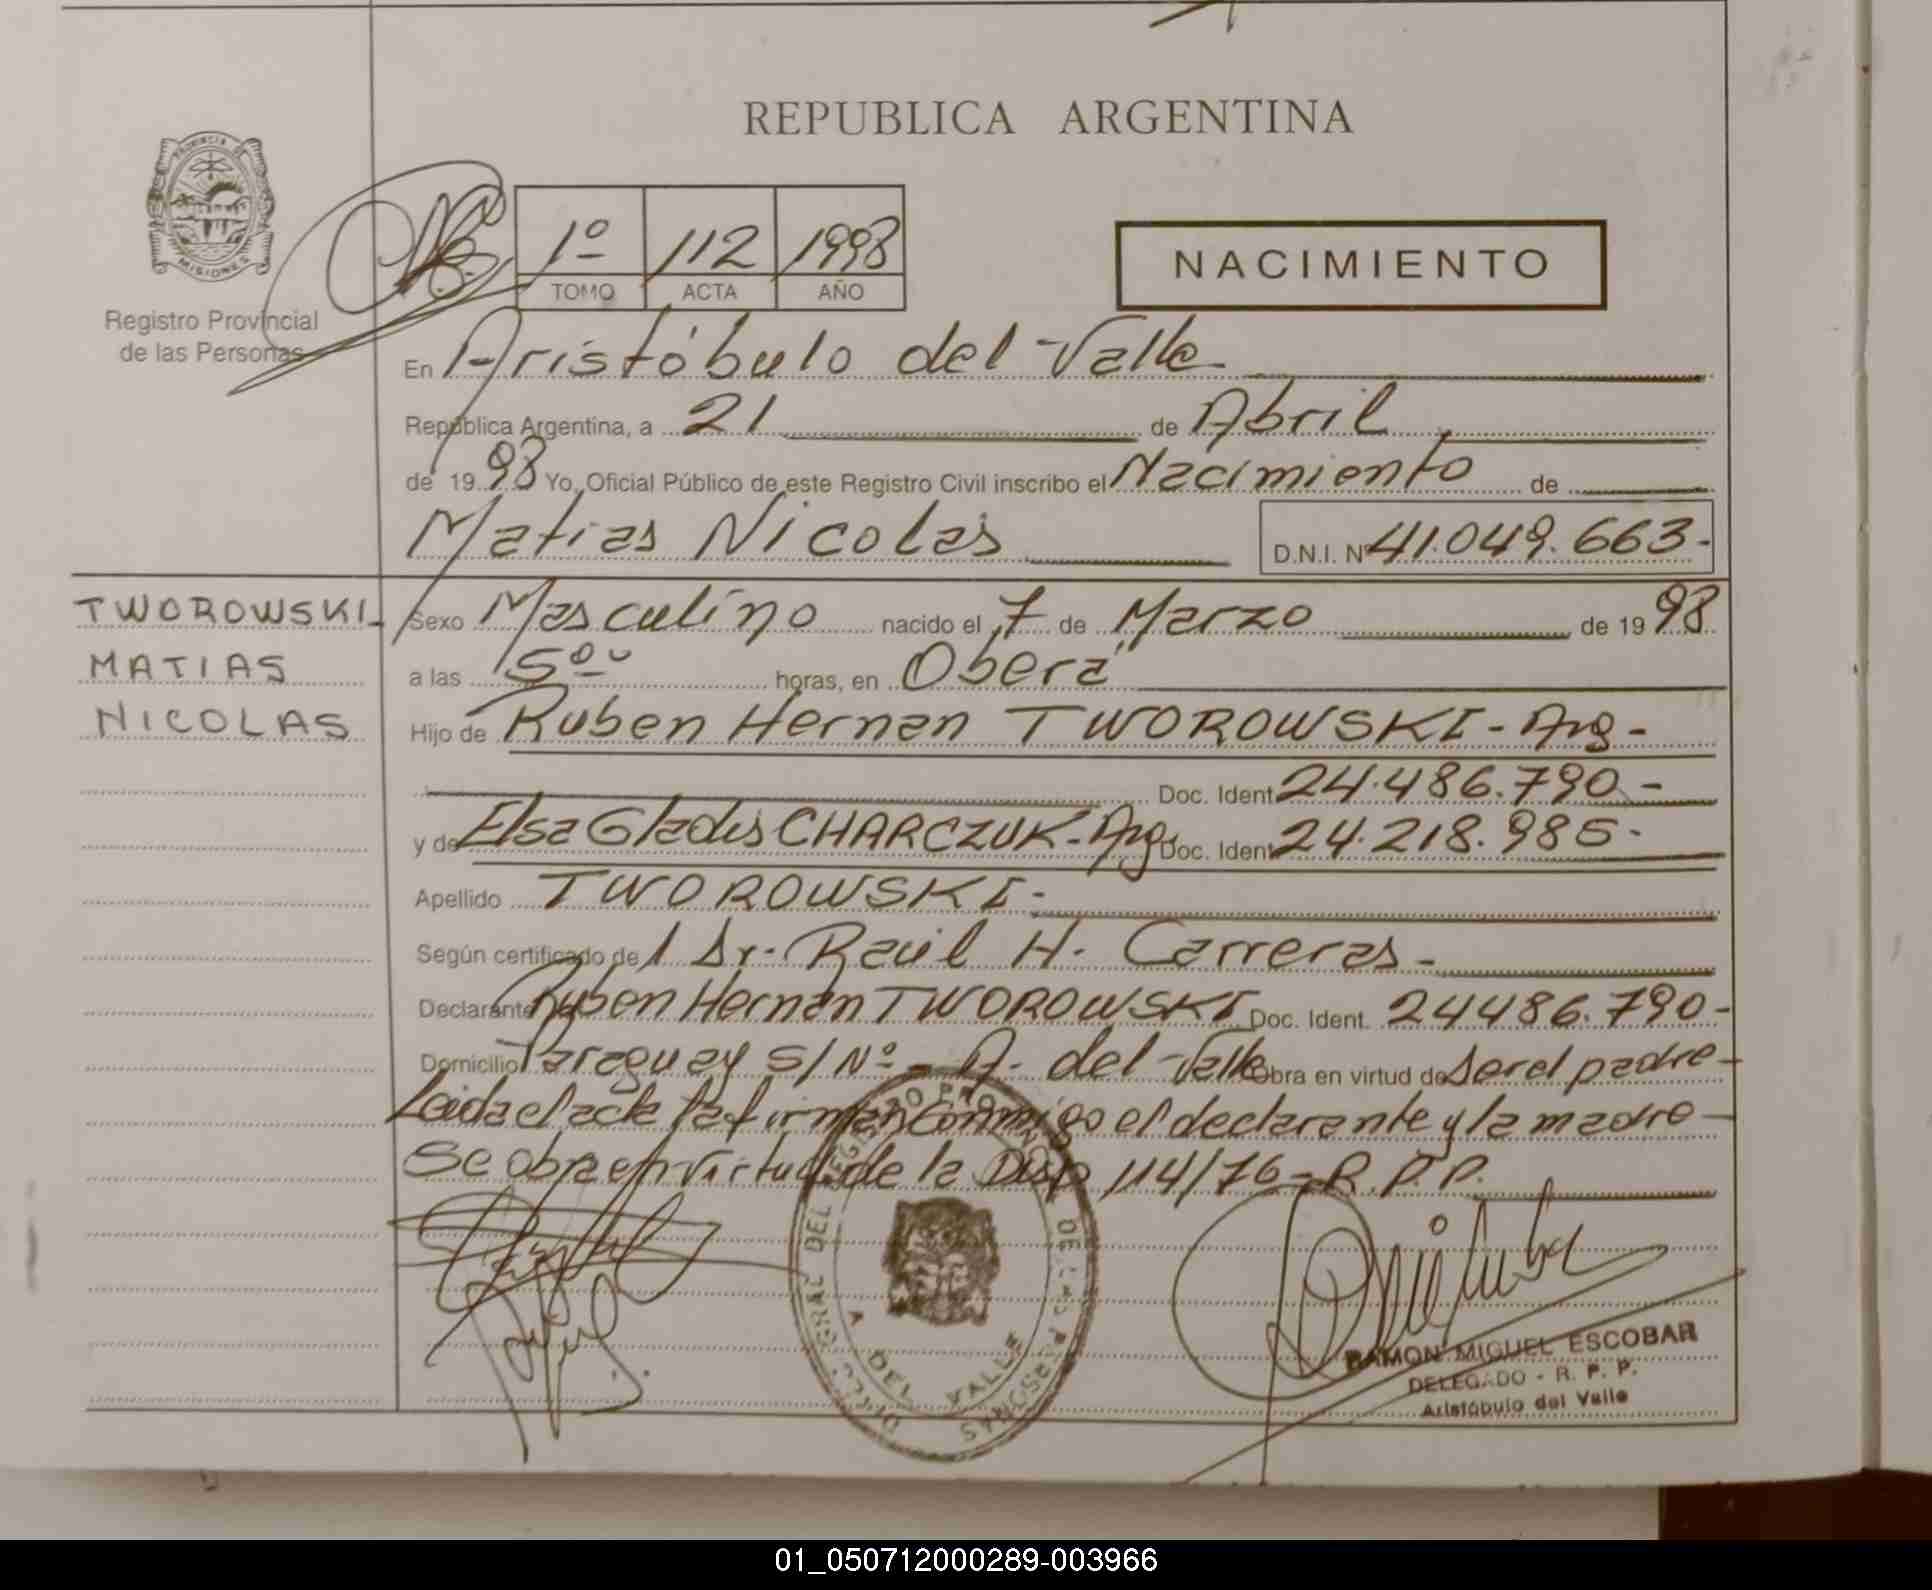 REPUBLICA ARGENTINA
PROVINCIA DE
MISIONES
Registro Provincial
de las Personas
1º 112 1998
TOMO ACTA AÑO
NACIMIENTO
En Aristóbulo del Valle
República Argentina, a 21 de Abril
de 1998 Yo, Oficial Público de este Registro Civil inscribo el Nacimiento de
Matias Nicolás D.N.I. Nº 41.049.663-
TWOROWSKI
MATIAS
NICOLAS
Sexo Masculino nacido el 7 de Marzo de 1998
a las 5º horas, en Oberá
Hijo de Ruben Hernan TWOROWSKI - Arg -
Doc. Ident 24.486.790 -
y de Elsa Gladis CHARCZUK - Arg Doc. Ident 24.218.985-
Apellido TWOROWSKI -
Según certificado de Dr. Raúl H. Carreras -
Declarante Ruben Hernan TWOROWSKI Doc. Ident. 24486.790-
Domicilio Paraguay S/Nº - A. del Valle Obra en virtud de Ser el padre -
Leida el acta la firman conmigo el declarante y la madre -
Se obra en virtud de la Disp 114/76 - R.P.P.
DIREC. GRAL DEL REGISTRO PROVINCIAL DE LAS PERSONAS
A. DEL VALLE
RAMON MIGUEL ESCOBAR
DELEGADO - R. P. P.
Aristóbulo del Valle
01_050712000289-003966